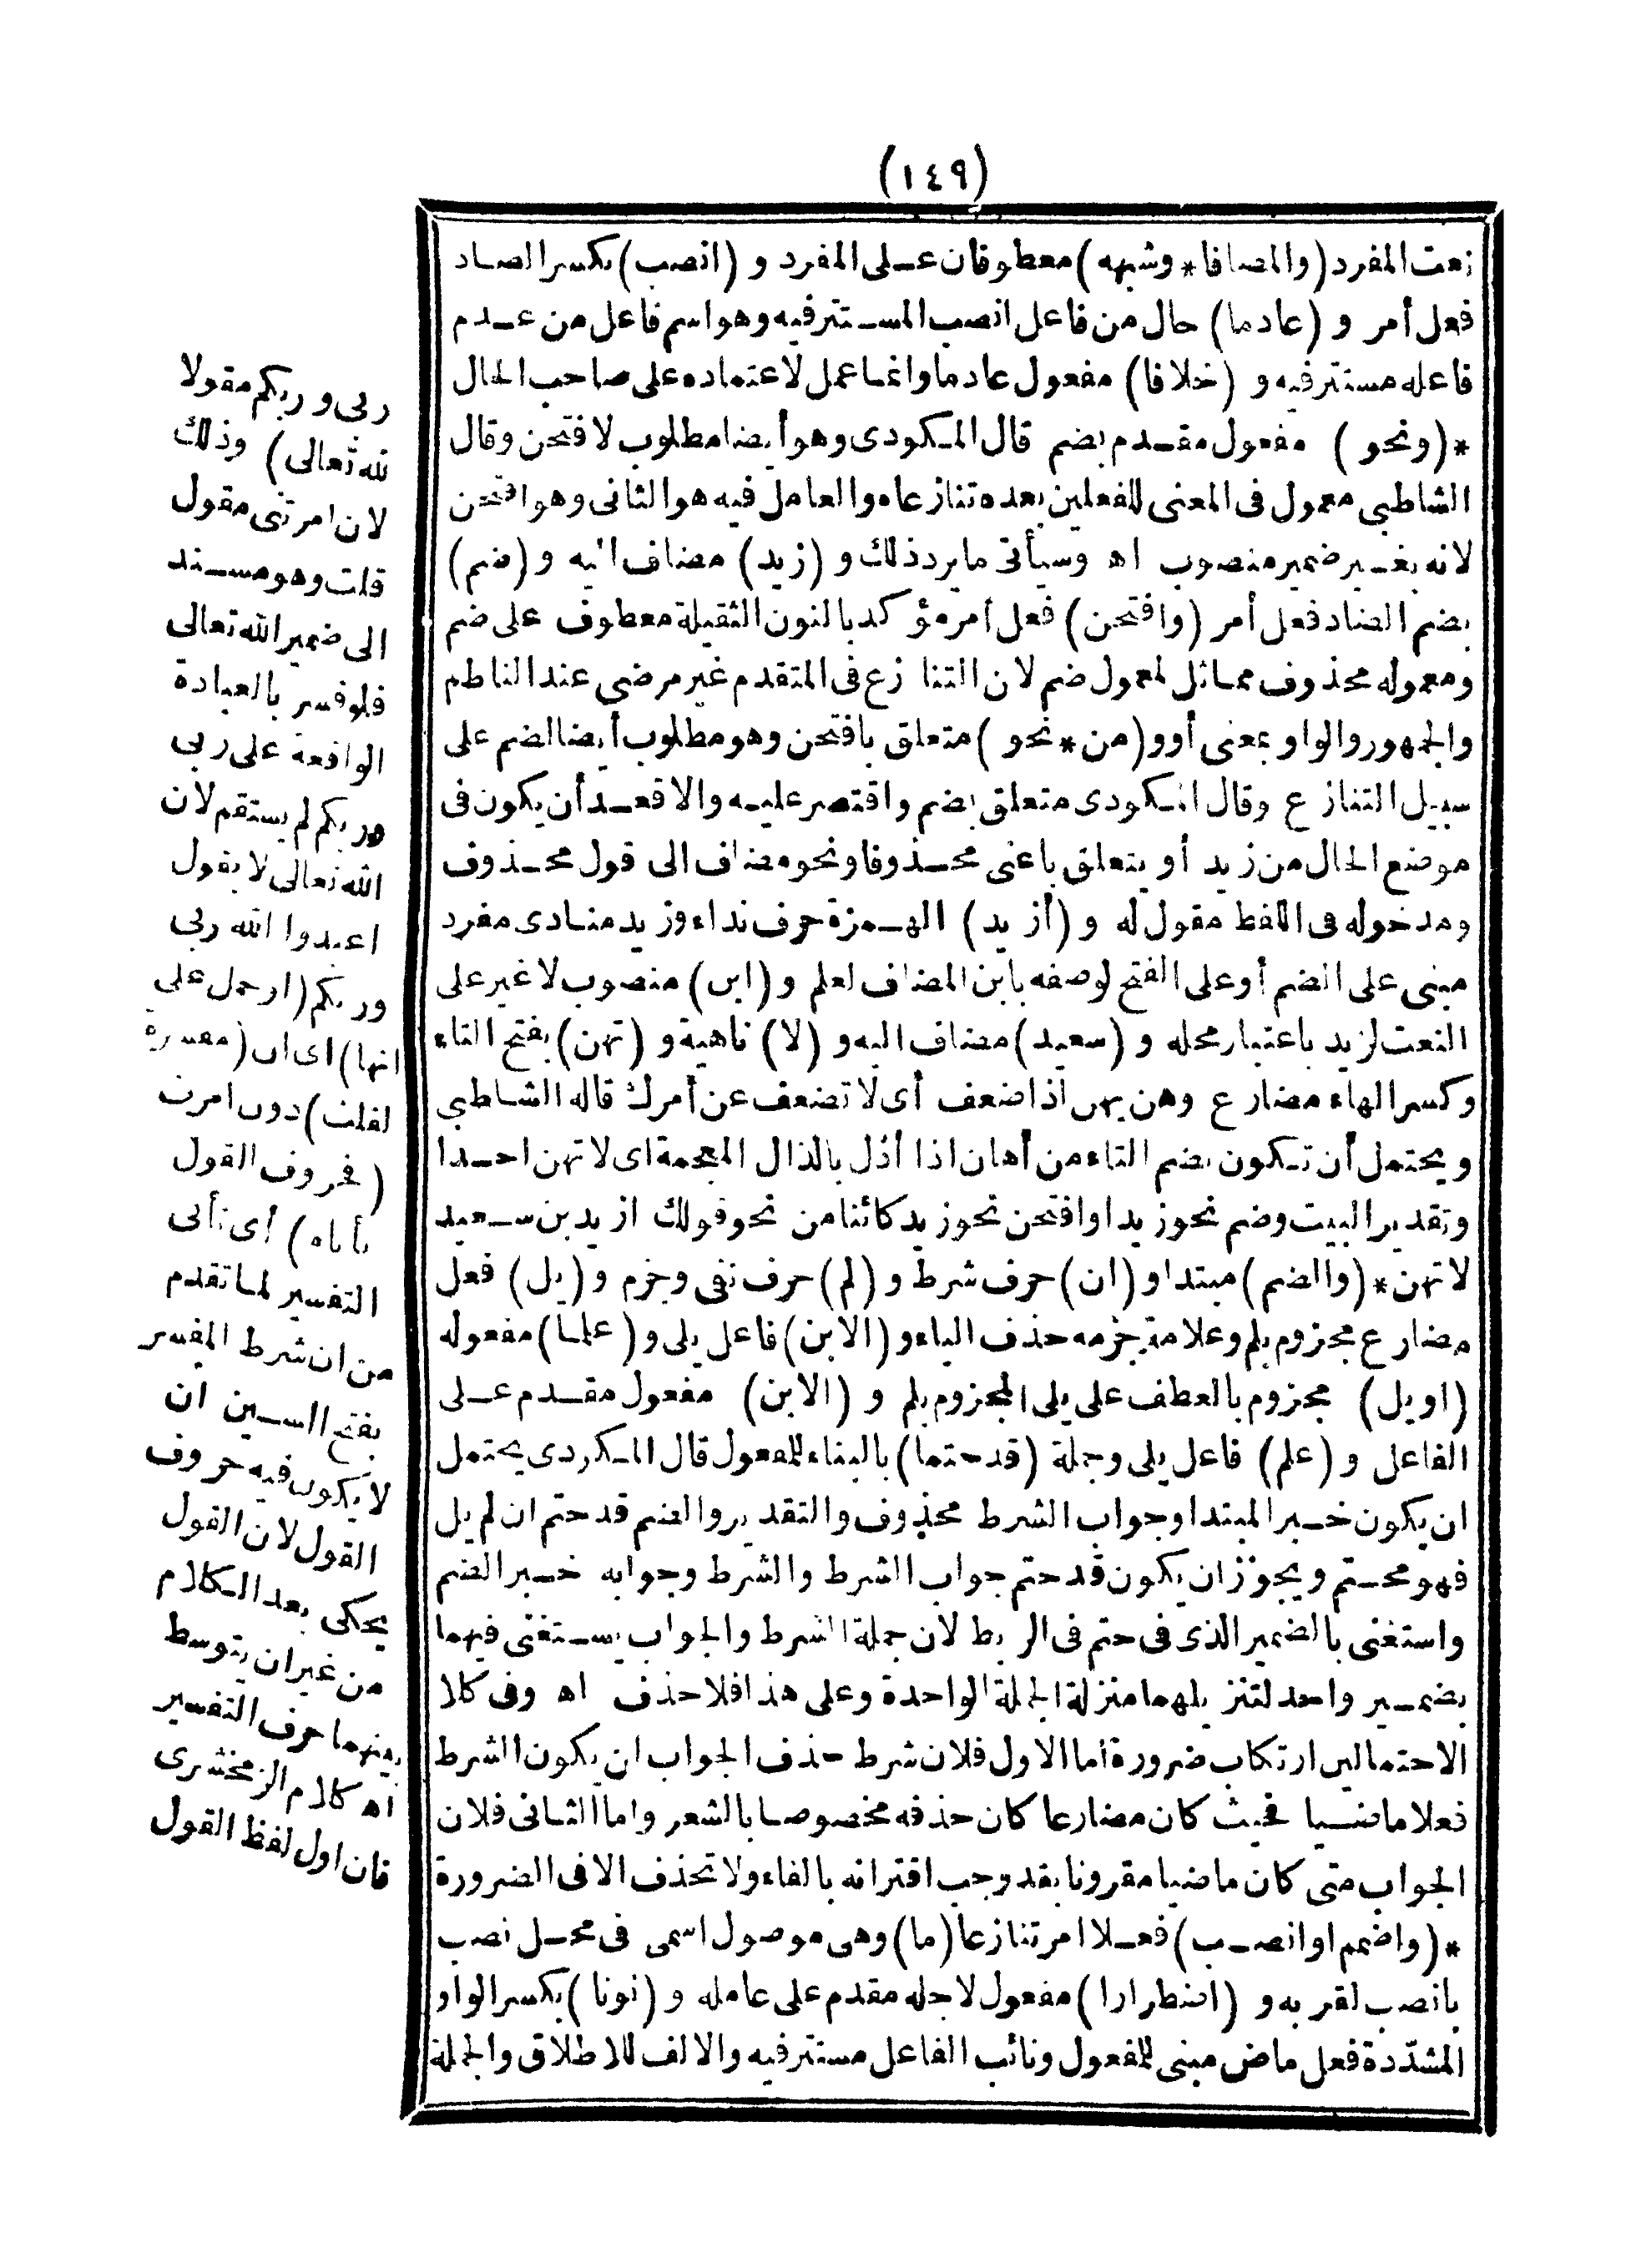 (١٤٩)
نعت المفرد (والمضافا * وشبهه) معطوفان على المفرد و (انصب) بكسر الصاد
فعل أمر و (عادما) حال من فاعل انصب المستتر فيه وهو اسم فاعل من عدم
فاعله مستتر فيه و (خلافا) مفعول عادما وانما عمل لاعتماده على صاحب الحال
* (ونحو) مفعول مقدم بضم قال المكودى وهو أيضا مطلوب لافتحن وقال
الشاطبى معمول فى المعنى للفعلين بعده تنازعاه والعامل فيه هو الثانى وهو افتحن
لانه بغير ضمير منصوب اه وسيأتى ما يرد ذلك و (زيد) مضاف اليه و (ضم)
بضم الضاد فعل أمر (وافتحن) فعل أمر مؤكد بالنون الثقيلة معطوف على ضم
ومعموله محذوف مماثل لمعمول ضم لان التنازع فى المتقدم غير مرضى عند الناظم
والجمهور والواو بمعنى أوو (من * نحو) متعلق بافتحن وهو مطلوب أيضا الضم على
سبيل التنازع وقال المكودى متعلق بضم واقتصر عليه والاقعد أن يكون فى
موضع الحال من زيد أو يتعلق باعنى محذوفا ونحو مضاف الى قول محذوف
ومدخوله فى اللفظ مقول له و (أزيد) الهمزة حرف نداء وزيد منادى مفرد
مبنى على الضم أو على الفتح لوصفه بابن المضاف لعلم و (ابن) منصوب لا غير على
النعت لزيد باعتبار محله و (سعيد) مضاف اليه و (لا) ناهية و (تهن) بفتح التاء
وكسر الهاء مضارع وهن يهن اذا ضعف أى لا تضعف عن أمرك قاله الشاطبى
ويحتمل أن تكون بضم التاء من أهان اذا أذل بالذال المعجمة اى لا تهن احدا
وتقدير البيت وضم نحو زيد او افتحن نحو زيد كائنا من نحو قولك ازيد بن سعيد
لا تهن * (والضم) مبتدا و (ان) حرف شرط و (لم) حرف نفى وجزم و (يل) فعل
مضارع مجزوم بلم وعلامة جزمه حذف الياء و (الابن) فاعل يلى و (علما) مفعوله
(او يل) مجزوم بالعطف على يلى المجزوم بلم و (الابن) مفعول مقدم على
الفاعل و (علم) فاعل يلى وجملة (قد حتما) بالبناء للمفعول قال المكودى يحتمل
ان يكون خبر المبتدا وجواب الشرط محذوف والتقدير والضم قد حتم ان لم يل
فهو محتم ويجوز ان يكون قد حتم جواب الشرط والشرط وجوابه خبر الضم
واستغنى بالضمير الذى فى حتم فى الربط لان جملة الشرط والجواب يستغنى فيهما
بضمير واحد لتنزيلهما منزلة الجملة الواحدة وعلى هذا فلا حذف اه وفى كلا
الاحتمالين ارتكاب ضرورة أما الاول فلان شرط حذف الجواب ان يكون الشرط
فعلا ماضيا فحيث كان مضارعا كان حذفه مخصوصا بالشعر واما الثانى فلان
الجواب متى كان ماضيا مقرونا بقد وجب اقترانه بالفاء ولا تحذف الا فى الضرورة
* (واضمم او انصب) فعلا امر تنازعا (ما) وهى موصول اسمى فى محل نصب
بانصب لقربه و (اضطرارا) مفعول لاجله مقدم على عامله و (نونا) بكسر الواو
المشددة فعل ماض مبنى للمفعول ونائب الفاعل مستتر فيه والالف للاطلاق والجملة
ربى وربكم مقولا
لله تعالى) وذلك
لان امرتنى مقول
قلت وهو مسند
الى ضمير الله تعالى
فلو فسر بالعبادة
الواقعة على ربى
وربكم لم يستقم لان
الله تعالى لا يقول
اعبدوا الله ربى
وربكم (ا وحمل على
انها) اى ان (مفسرة
لقلت) دون امرت
(فحروف القول
تأباه) أى تأبى
التفسير لما تقدم
من ان شرط المفسر
بفتح السين ان
لا يكون فيه حروف
القول لان القول
يحكى بعد الكلام
من غير ان يتوسط
بينهما حرف التفسير
اه كلام الزمخشرى
فان اول لفظ القول